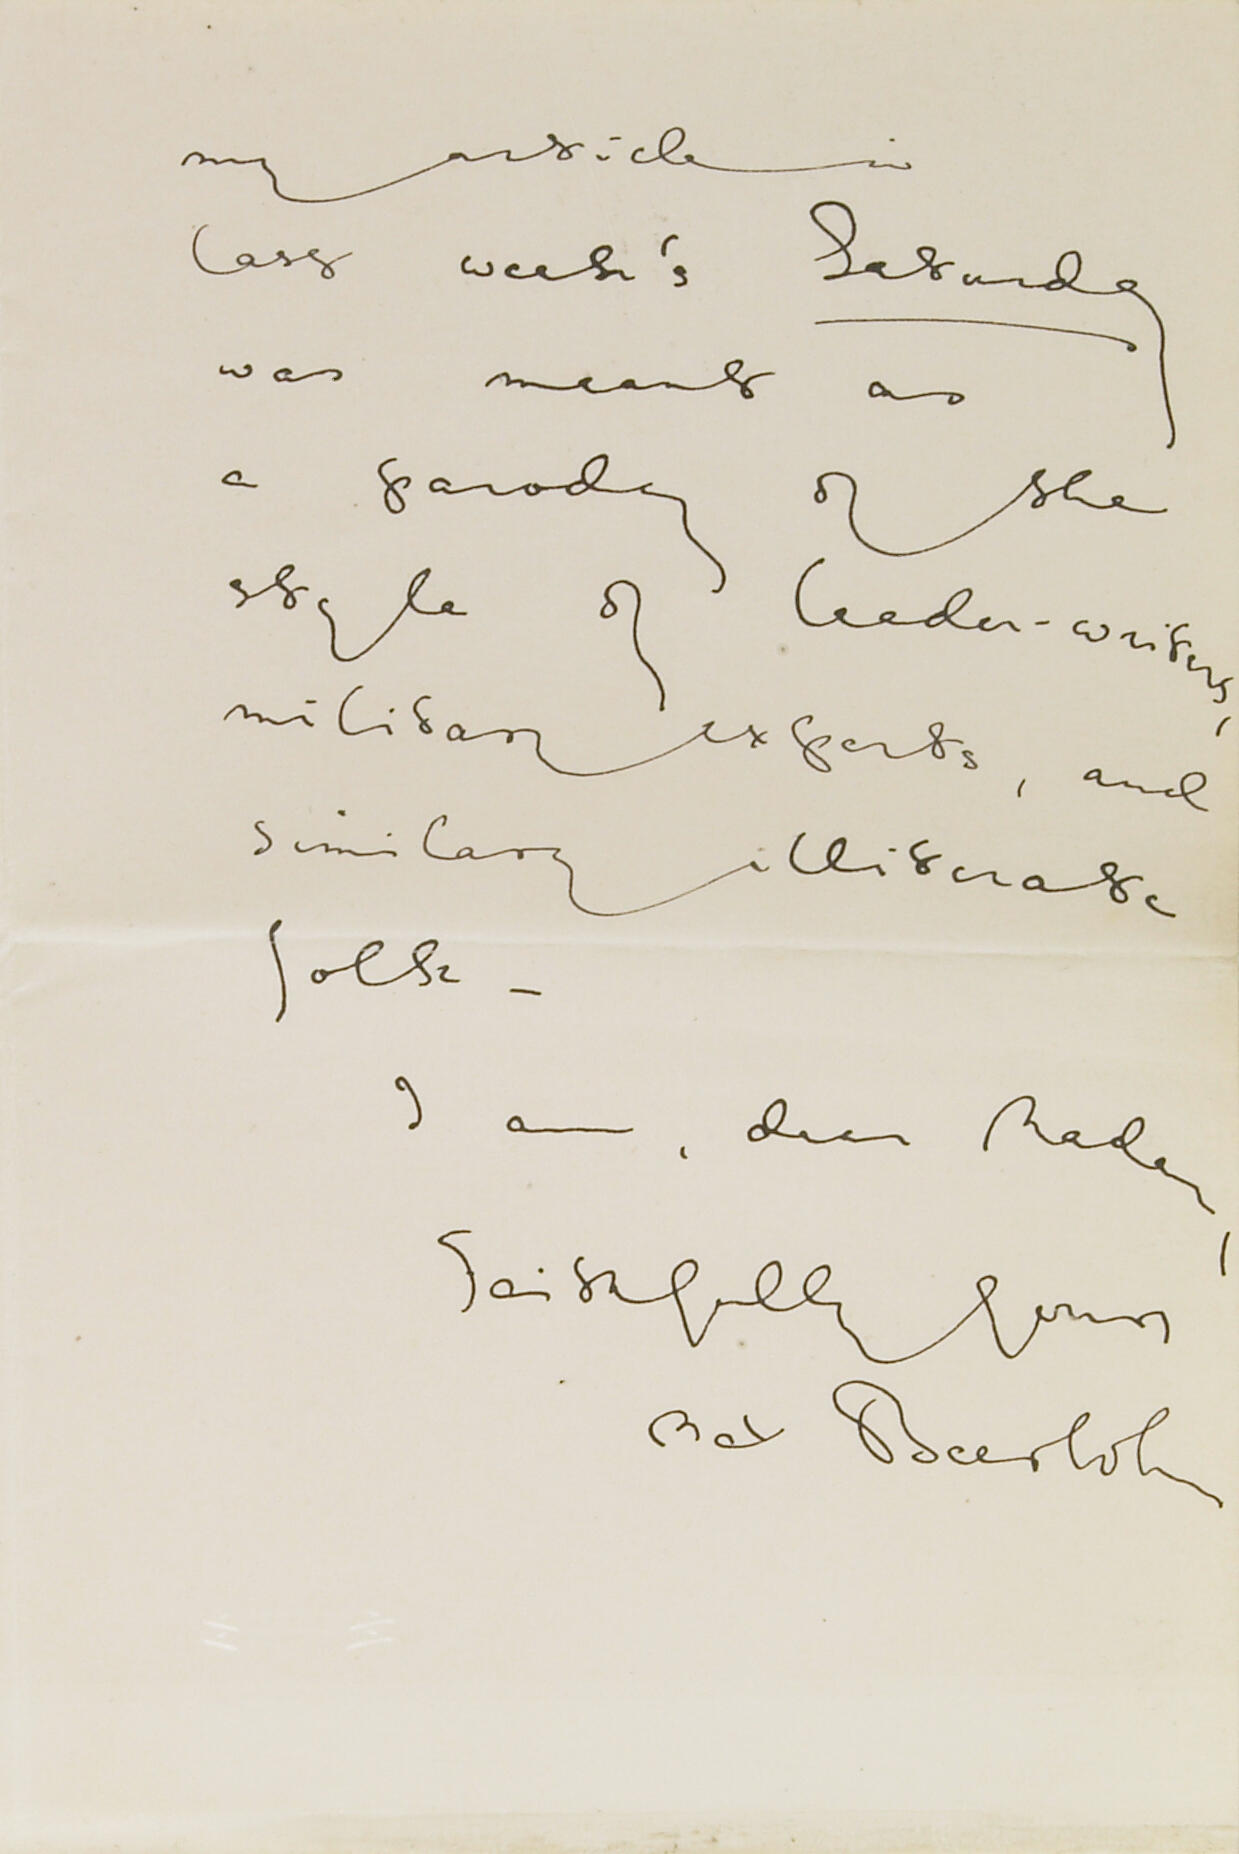 my article in
last week's Saturday
was meant as
a parody of the
style of leader-writers,
military experts, and
similarly illiterate
folk –
I am, dear Madam,
Faithfully yours
Max Beerbohm